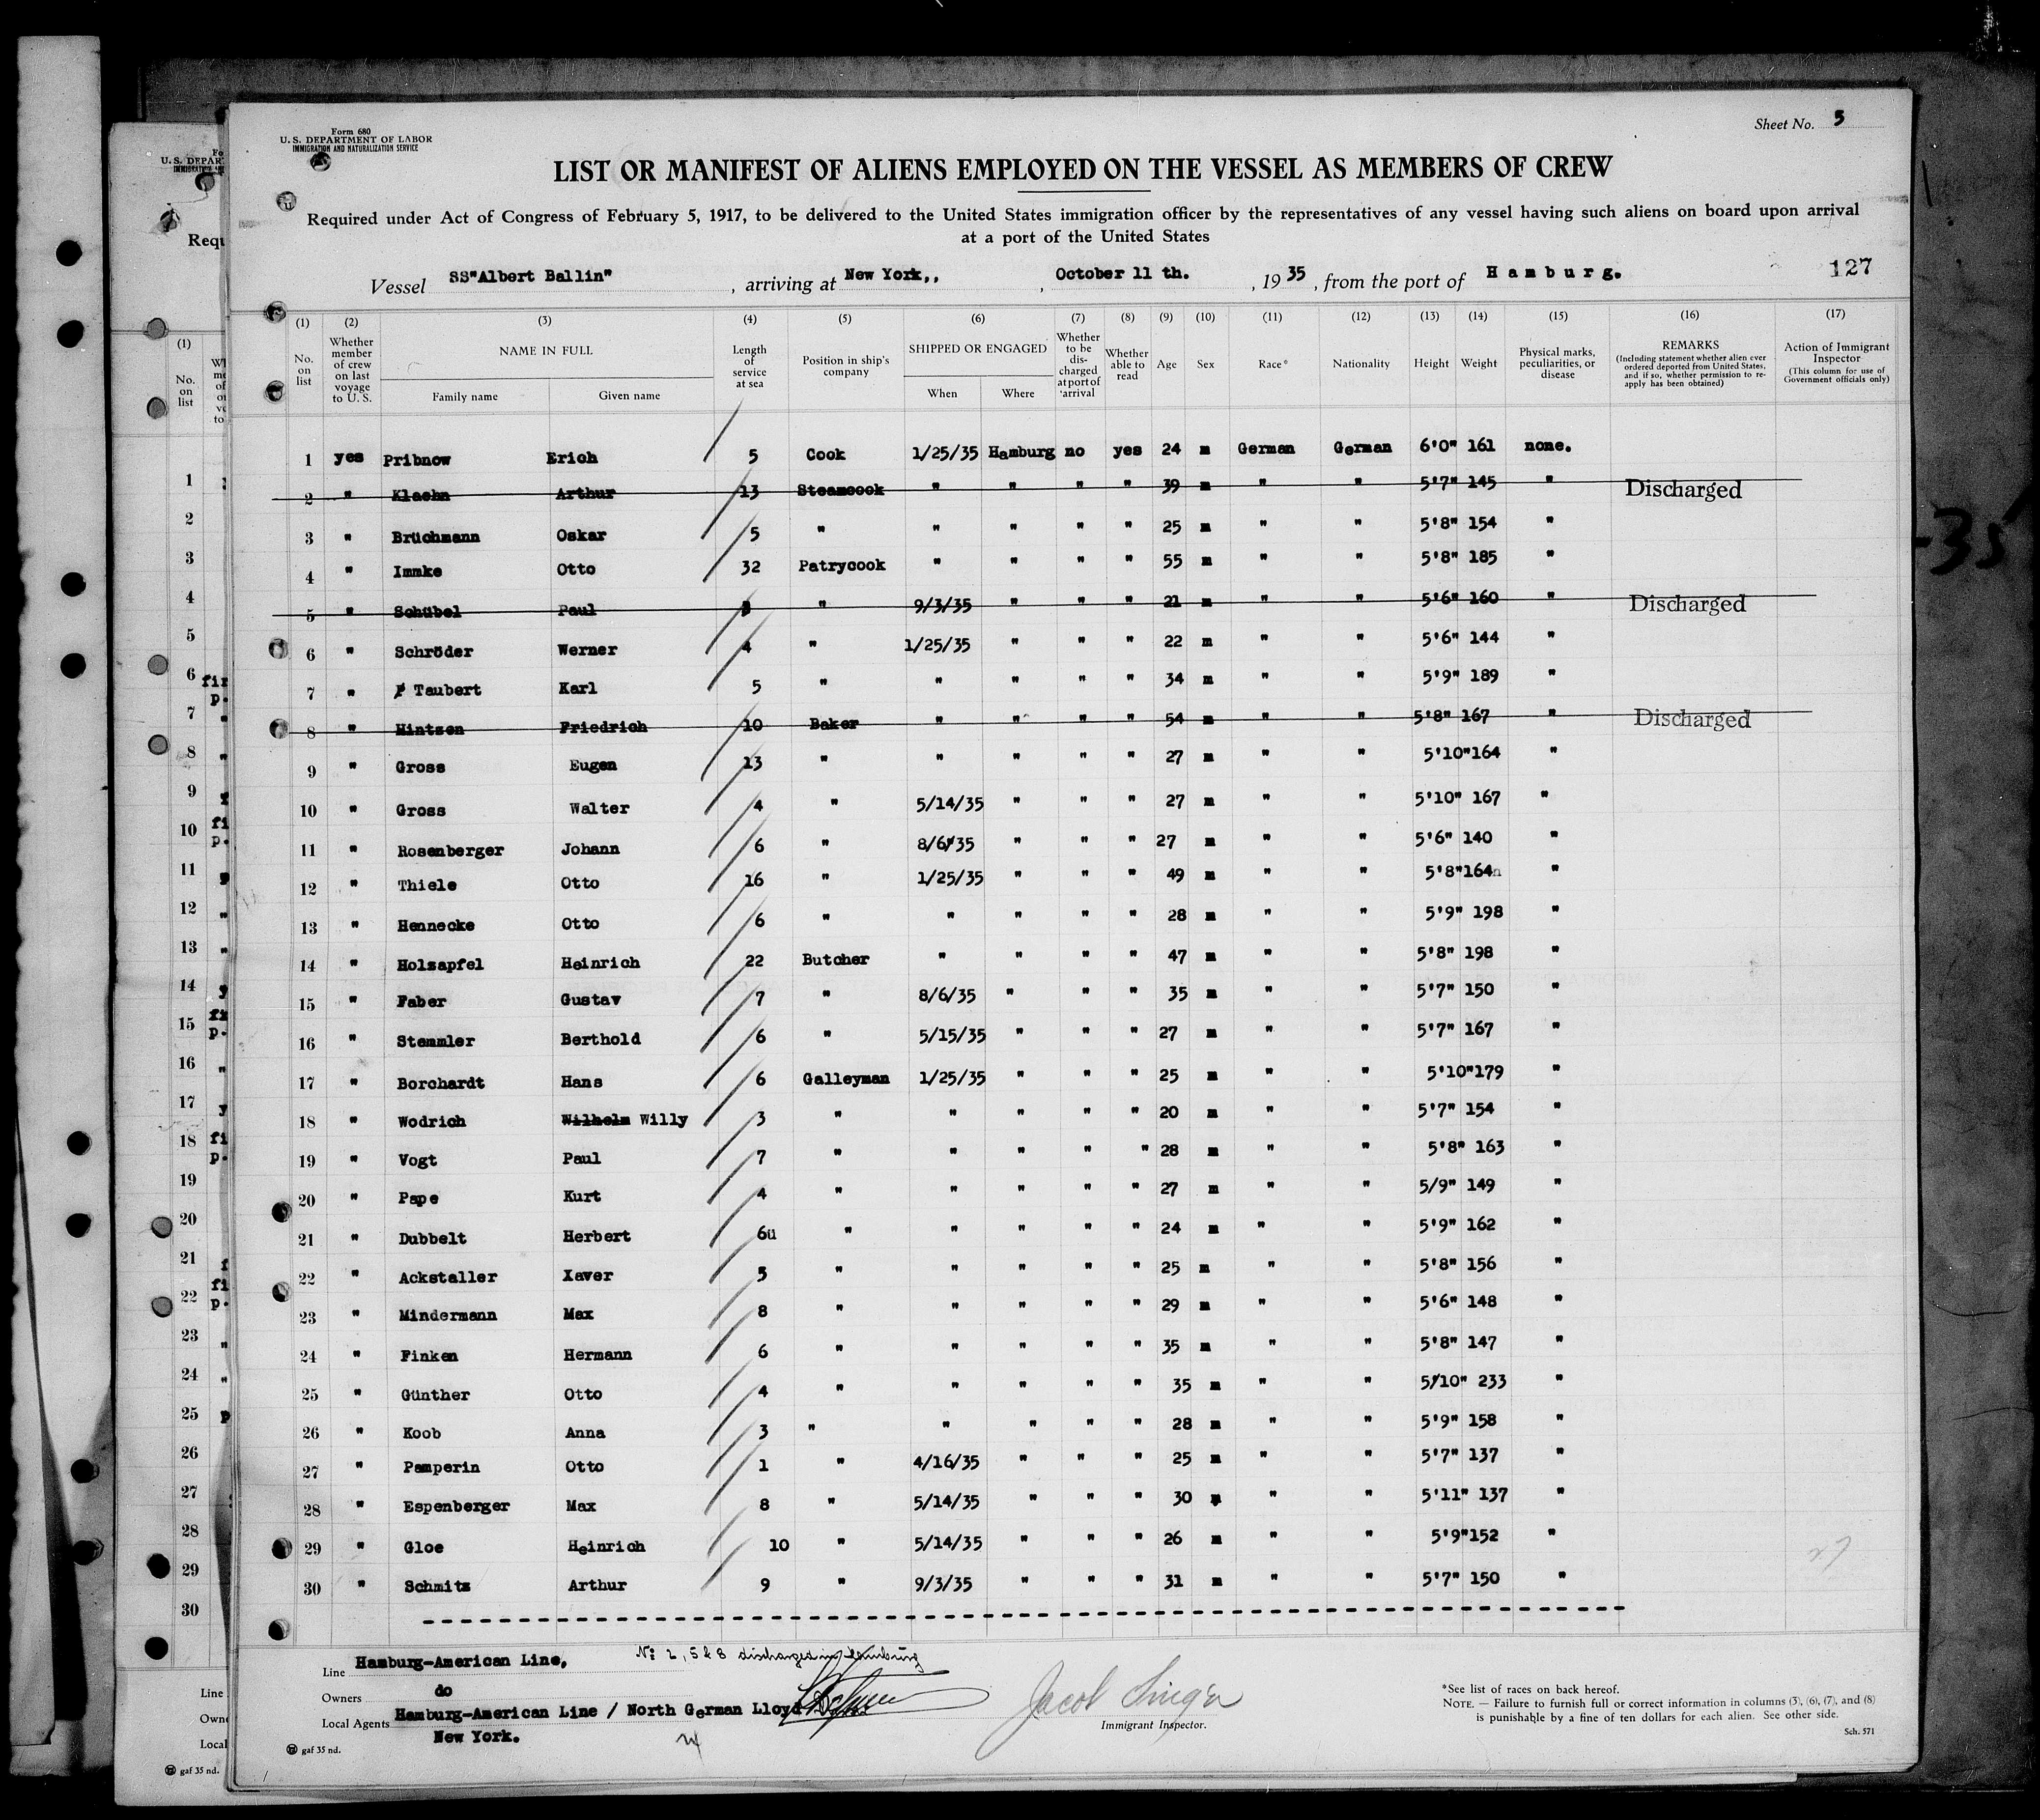 Form 680
U. S. DEPARTMENT OF LABOR
IMMIGRATION AND NATURALIZATION SERVICE
Sheet No. 5
LIST OR MANIFEST OF ALIENS EMPLOYED ON THE VESSEL AS MEMBERS OF CREW
Required under Act of Congress of February 5, 1917, to be delivered to the United States immigration officer by the representatives of any vessel having such aliens on board upon arrival
at a port of the United States
Vessel SS"Albert Ballin" , arriving at New York,, , October 11 th. , 19 35 , from the port of Hamburg. 127
(1) No. on list
(2) Whether member of crew on last voyage to U. S.
(3) NAME IN FULL Family name Given name
(4) Length of service at sea
(5) Position in ship's company
(6) SHIPPED OR ENGAGED When Where
(7) Whether to be dis-charged at port of arrival
(8) Whether able to read
(9) Age
(10) Sex
(11) Race*
(12) Nationality
(13) Height
(14) Weight
(15) Physical marks, peculiarities, or disease
(16) REMARKS (Including statement whether alien ever ordered deported from United States, and if so, whether permission to re-apply has been obtained)
(17) Action of Immigrant Inspector (This column for use of Government officials only)
1 yes Pribnow Erich 5 Cook 1/25/35 Hamburg no yes 24 m German German 6'0" 161 none.
2 " Klaehn Arthur 13 Steamcook " " " " 39 m " " 5'7" 145 " Discharged
3 " Brüchmann Oskar 5 " " " " " 25 m " " 5'8" 154 "
4 " Immke Otto 32 Patrycook " " " " 55 m " " 5'8" 185 "
5 " Schübel Paul " 9/3/35 " " " 21 m " " 5'6" 160 " Discharged
6 " Schröder Werner 4 " 1/25/35 " " " 22 m " " 5'6" 144 "
7 " Taubert Karl 5 " " " " " 34 m " " 5'9" 189 "
8 " Hintzen Friedrich 10 Baker " " " " 54 m " " 5'8" 167 " Discharged
9 " Gross Eugen 13 " " " " " 27 m " " 5'10" 164 "
10 " Gross Walter 4 " 5/14/35 " " " 27 m " " 5'10" 167 "
11 " Rosenberger Johann 6 " 8/6/35 " " " 27 m " " 5'6" 140 "
12 " Thiele Otto 16 " 1/25/35 " " " 49 m " " 5'8" 164 "
13 " Hennecke Otto 6 " " " " " 28 m " " 5'9" 198 "
14 " Holzapfel Heinrich 22 Butcher " " " " 47 m " " 5'8" 198 "
15 " Faber Gustav 7 " 8/6/35 " " " 35 m " " 5'7" 150 "
16 " Stemmler Berthold 6 " 5/15/35 " " " 27 m " " 5'7" 167 "
17 " Borchardt Hans 6 Galleyman 1/25/35 " " " 25 m " " 5'10" 179 "
18 " Wodrich Wilhelm Willy 3 " " " " " 20 m " " 5'7" 154 "
19 " Vogt Paul 7 " " " " " 28 m " " 5'8" 163 "
20 " Pape Kurt 4 " " " " " 27 m " " 5/9" 149 "
21 " Dubbelt Herbert 6u " " " " " 24 m " " 5'9" 162 "
22 " Ackstaller Xaver 5 " " " " " 25 m " " 5'8" 156 "
23 " Mindermann Max 8 " " " " " 29 m " " 5'6" 148 "
24 " Finken Hermann 6 " " " " " 35 m " " 5'8" 147 "
25 " Günther Otto 4 " " " " " 35 m " " 5/10" 233 "
26 " Koob Anna 3 " " " " " 28 m " " 5'9" 158 "
27 " Pamperin Otto 1 " 4/16/35 " " " 25 m " " 5'7" 137 "
28 " Espenberger Max 8 " 5/14/35 " " " 30 m " " 5'11" 137 "
29 " Gloe Heinrich 10 " 5/14/35 " " " 26 m " " 5'9" 152 "
30 " Schmitz Arthur 9 " 9/3/35 " " " 31 m " " 5'7" 150 "
27
No 2, 5 & 8 discharged in Hamburg
Line Hamburg-American Line,
Owners do
Local Agents Hamburg-American Line / North German Lloyd
New York.
Jacob Singer
Immigrant Inspector.
*See list of races on back hereof.
NOTE. — Failure to furnish full or correct information in columns (3), (6), (7), and (8)
is punishable by a fine of ten dollars for each alien. See other side.
Sch. 571
gaf 35 nd.
-35